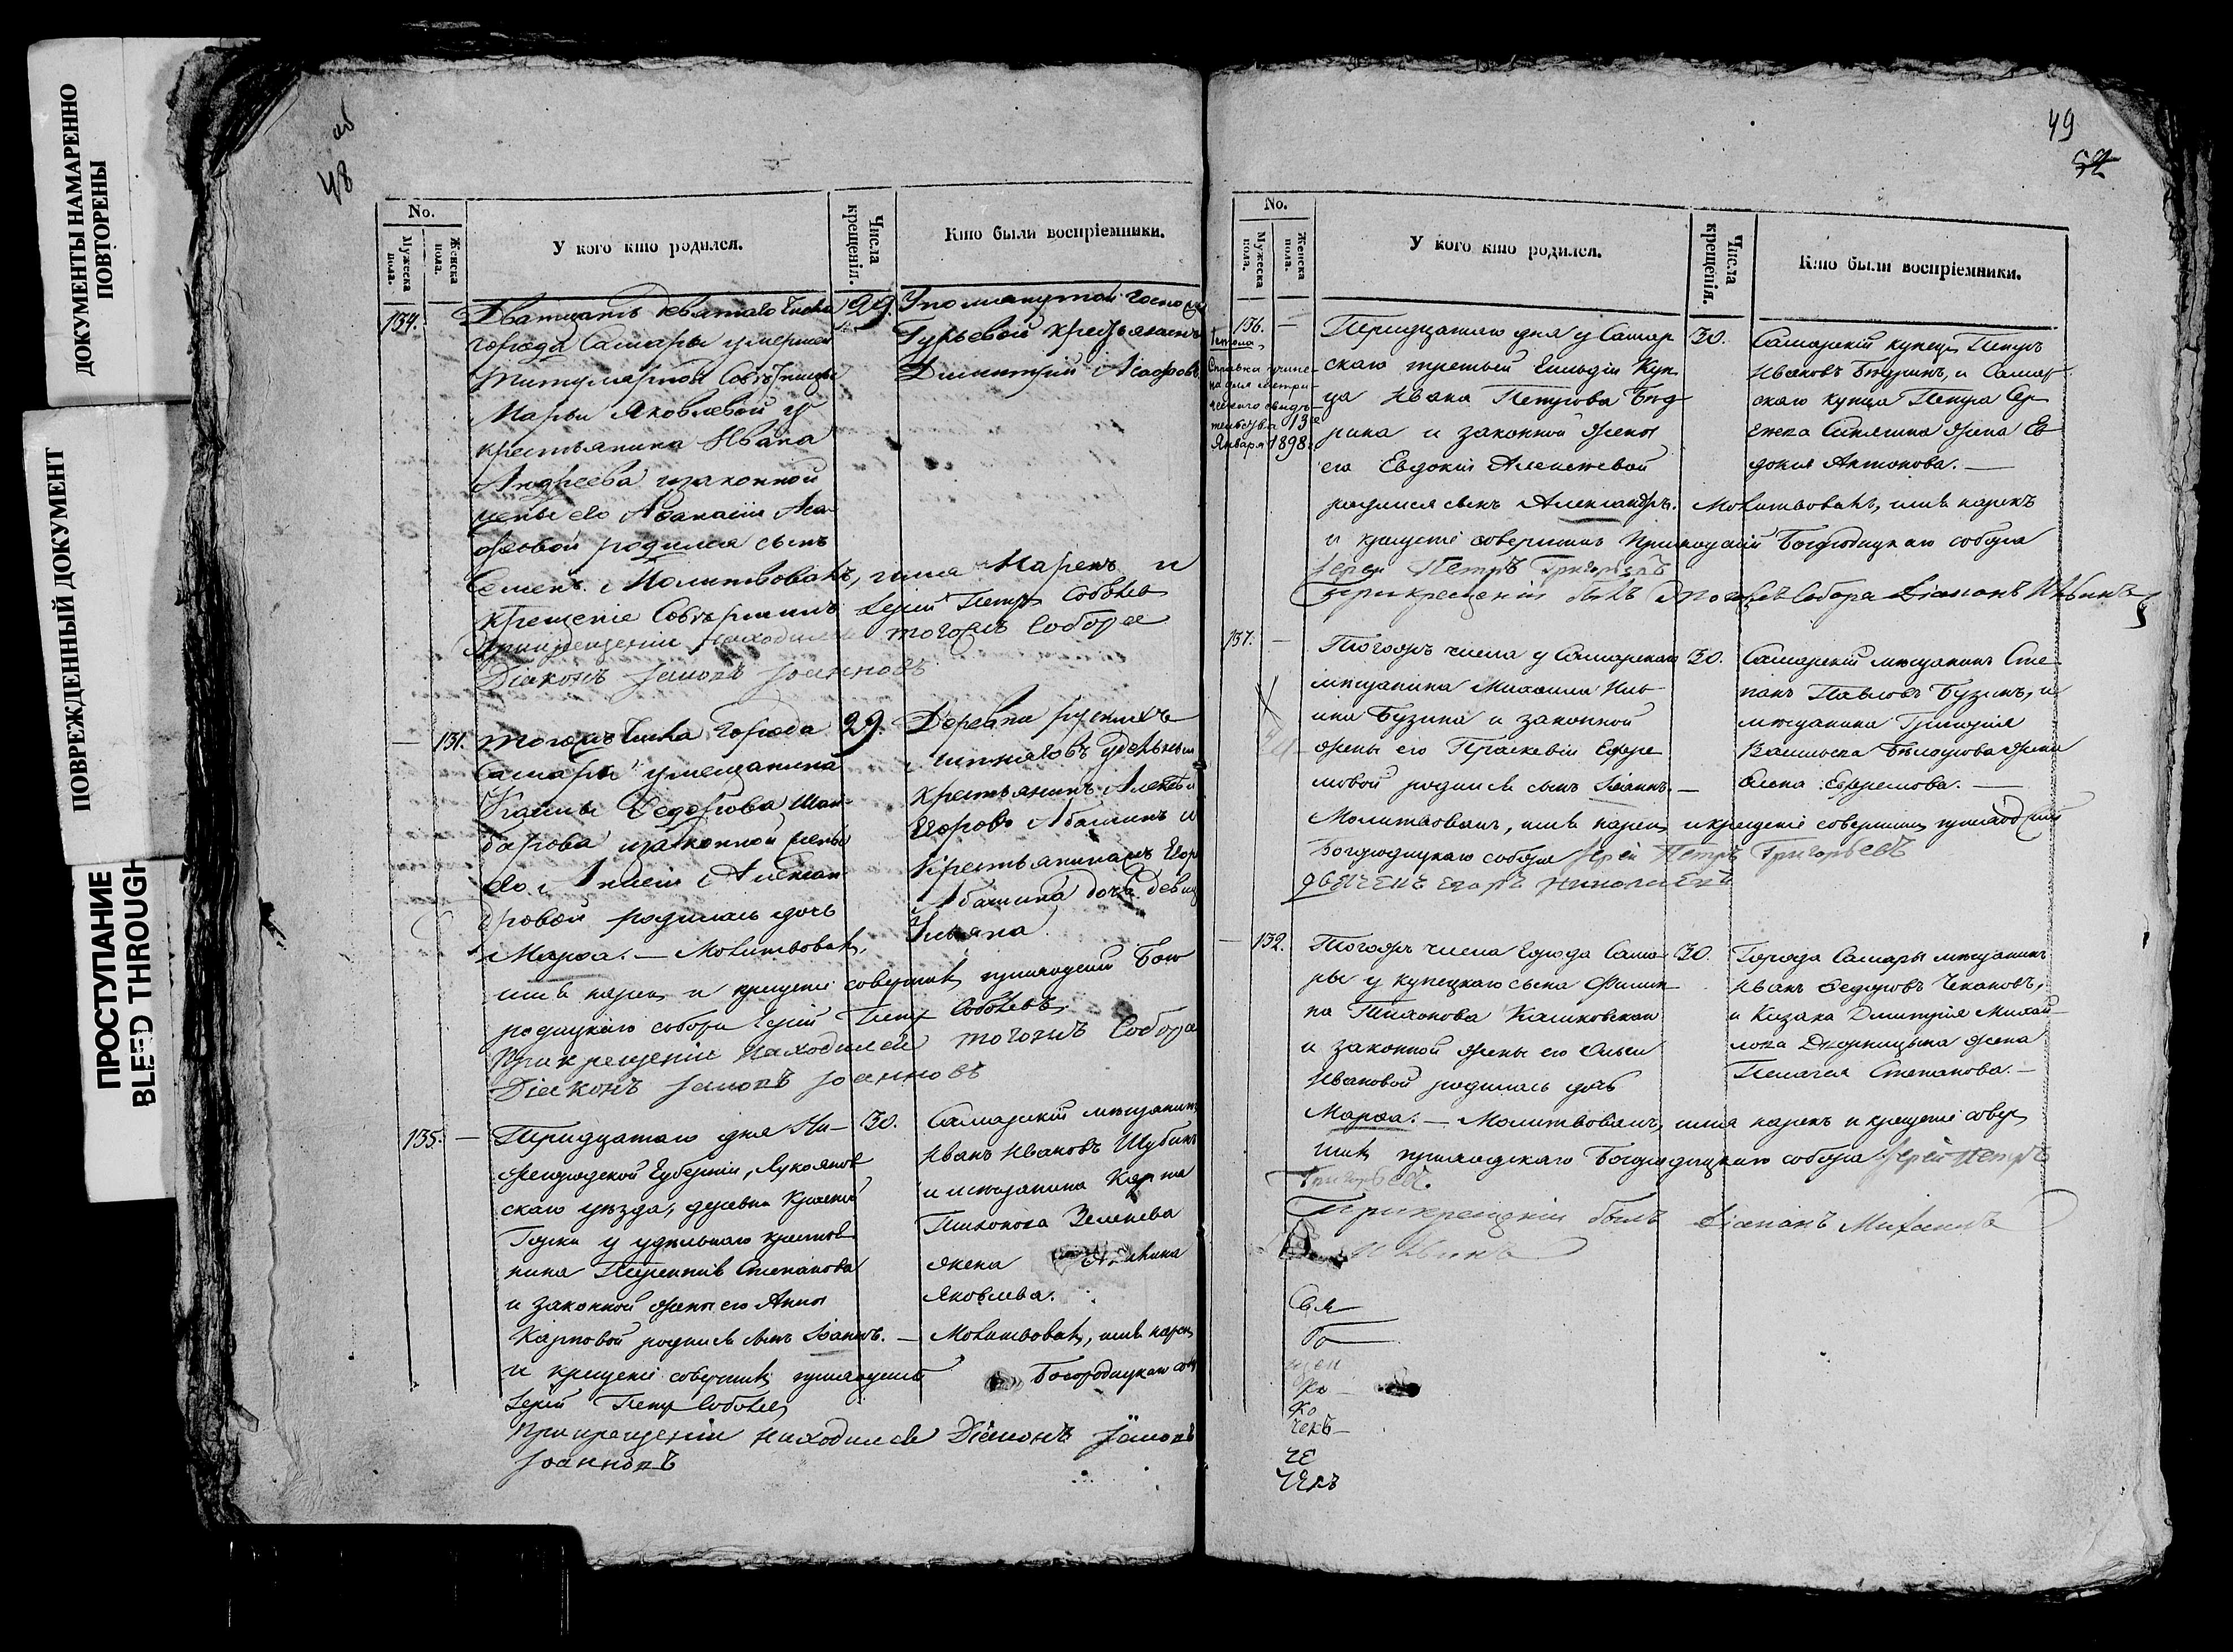 ДОКУМЕНТЫ НАМАРЕННО
ПОВТОРЕНЫ
ПОВРЕЖДЕННЫЙ ДОКУМЕНТ
ПРОСТУПАНИЕ
BLEED THROUGH
об
48
No.
Мужеска пола.
Женска пола.
У кого кто родился.
Числа крещенія.
Кто были воспріемники.
134.
Дватцать девятаго числа
города Самары умершей
Титулярной Совѣтницы
Марьи Яковлевой у
крестьянина Ивана
Андреева и законной
жены его
родился сынъ
Семенъ. Молитвовалъ, имя Нарекъ и
крещеніе Совершилъ Іерей Петръ Соболевъ
При крещеніи находился тогожъ Собора
Діаконъ Іаковъ Іоанновъ
29.
Упомянутой Госпожи
Гурьевой крестьянинъ
Димитрій
131.
Тогожъ числа города
Самары у мещанина
Федорова
и законной жены
его
родилась дочь
Марѳа. — Молитвовалъ,
имя нарекъ и крещеніе совершилъ приходскій Бого
родицкаго собора Іерей Петръ Соболевъ
При крещеніи находился тогожъ Собора
Діаконъ Іаковъ Іоанновъ
29.
Деревни рускихъ
Липяговъ удельный
крестьянинъ Алексей
Егоровъ Абашинъ и
Крестьянина Егора
Абашина дочь девица
Ульяна
135. —
Тридцатаго дня Ни-
жегородской Губерніи, Лукоянов
скаго уѣзда, деревни Красной
Горки у удѣльнаго крестья
нина Терентія Степанова
и законной жены его Анны
Карповой родился сынъ Іоаннъ. — Молитвовалъ, имя нарекъ
и крещеніе совершилъ приходскій Богородицкаго соб
Іерей Петръ Соболевъ
При крещеніи находился Діаконъ Іаковъ
Іоанновъ
30.
Самарскій мѣщанинъ
Иванъ Ивановъ Шубинъ
и мѣщанина Карпа
Тихонова Зеленева
жена
Яковлева.
49
52
No.
Мужеска пола.
Женска пола.
У кого кто родился.
Числа крещенія.
Кто были воспріемники.
136. —
Справка учине-
на для метри-
ческаго свидѣ-
тельства 13
Января 1898
Тридцатаго дня у Самар
скаго третьей Гильдіи Куп
ца Ивана Петрова
и законной жены
его Евдокіи Алексѣевой
родился сынъ Александръ. Молитвовалъ, имя нарекъ
и крещеніе совершилъ Приходскій Богородицкаго собора
Іерей Петръ Григорьевъ
При крещеніи былъ тогожъ Собора Діаконъ
30.
Самарскій купецъ Петръ
Ивановъ и Самар
скаго купца Петра Сер
жена Ев
докія Антонова. —
137. —
Тогожъ числа у Самарскаго
мѣщанина Михаила Иль
ина Бузина и законной
жены его Праскевіи Ефре
мовой родился сынъ Іоаннъ. —
Молитвовалъ, имя нарекъ и крещеніе совершилъ приходскій
Богородицкаго собора Іерей Петръ Григорьевъ
Егоръ Николаевъ
30.
Самарскій мѣщанинъ Сте-
панъ Павловъ Бузинъ, и
мѣщанина Григорія
Васильева жена
Елена Ефремова. —
— 132.
Тогожъ числа Города Сама-
ры у купецкаго сына Филип-
па Тихонова
и законной жены его Ольги
Ивановой родилась дочь
Марѳа. — Молитвовалъ, имя нарекъ и крещеніе совер
шилъ приходскаго Богородицкаго собора Іерей Петръ
Григорьевъ.
При крещеніи былъ Діаконъ Михаилъ
30.
Города Самары мѣщанинъ
Иванъ Федоровъ Чекановъ,
и Казака Дмитрія Михай-
лова жена
Пелагея Степанова. —
ко
чекъ
че
чекъ